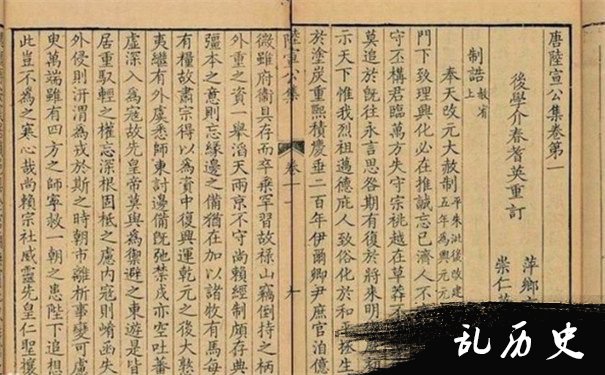 唐陸宣公集卷第一
後學介春耆英重訂
萍鄉
崇仁
制誥 赦宥上
奉天改元大赦制 平朱泚後改建中五年為興元元
門下致理興化必在推誠忘己濟人不
守丕構君臨萬方失守宗祧越在草莽不
莫追於既往永言思咎期有復於將來明
示天下惟我烈祖邁德庇人致俗化於和平拯生
於塗炭重熙積慶垂二百年伊爾卿尹庶官洎億
陸宣公集
卷十一
十
微雖府衞具存而卒乘罕習故祿山竊倒持之柄
外重之資一舉滔天兩京不守尚賴經制頗存典
彊本之意則忘緣邊之備猶在加以諸牧有馬每
有糧故肅宗得以為資中復興運乾元之後大憝
夷繼有外虞悉師東討邊備既弛禁戎亦空吐蕃
虛深入為寇故先皇帝莫與為禦避之東遊是皆
居重馭輕之權忘深根固柢之慮內寇則崤函失
外侵則汧渭為戎於斯之時朝市離析事變可慮
臾萬端雖有四方之師寧救一朝之患陛下追想
此豈不為之寒心哉尚賴宗社威靈先皇仁聖攘
乱历史